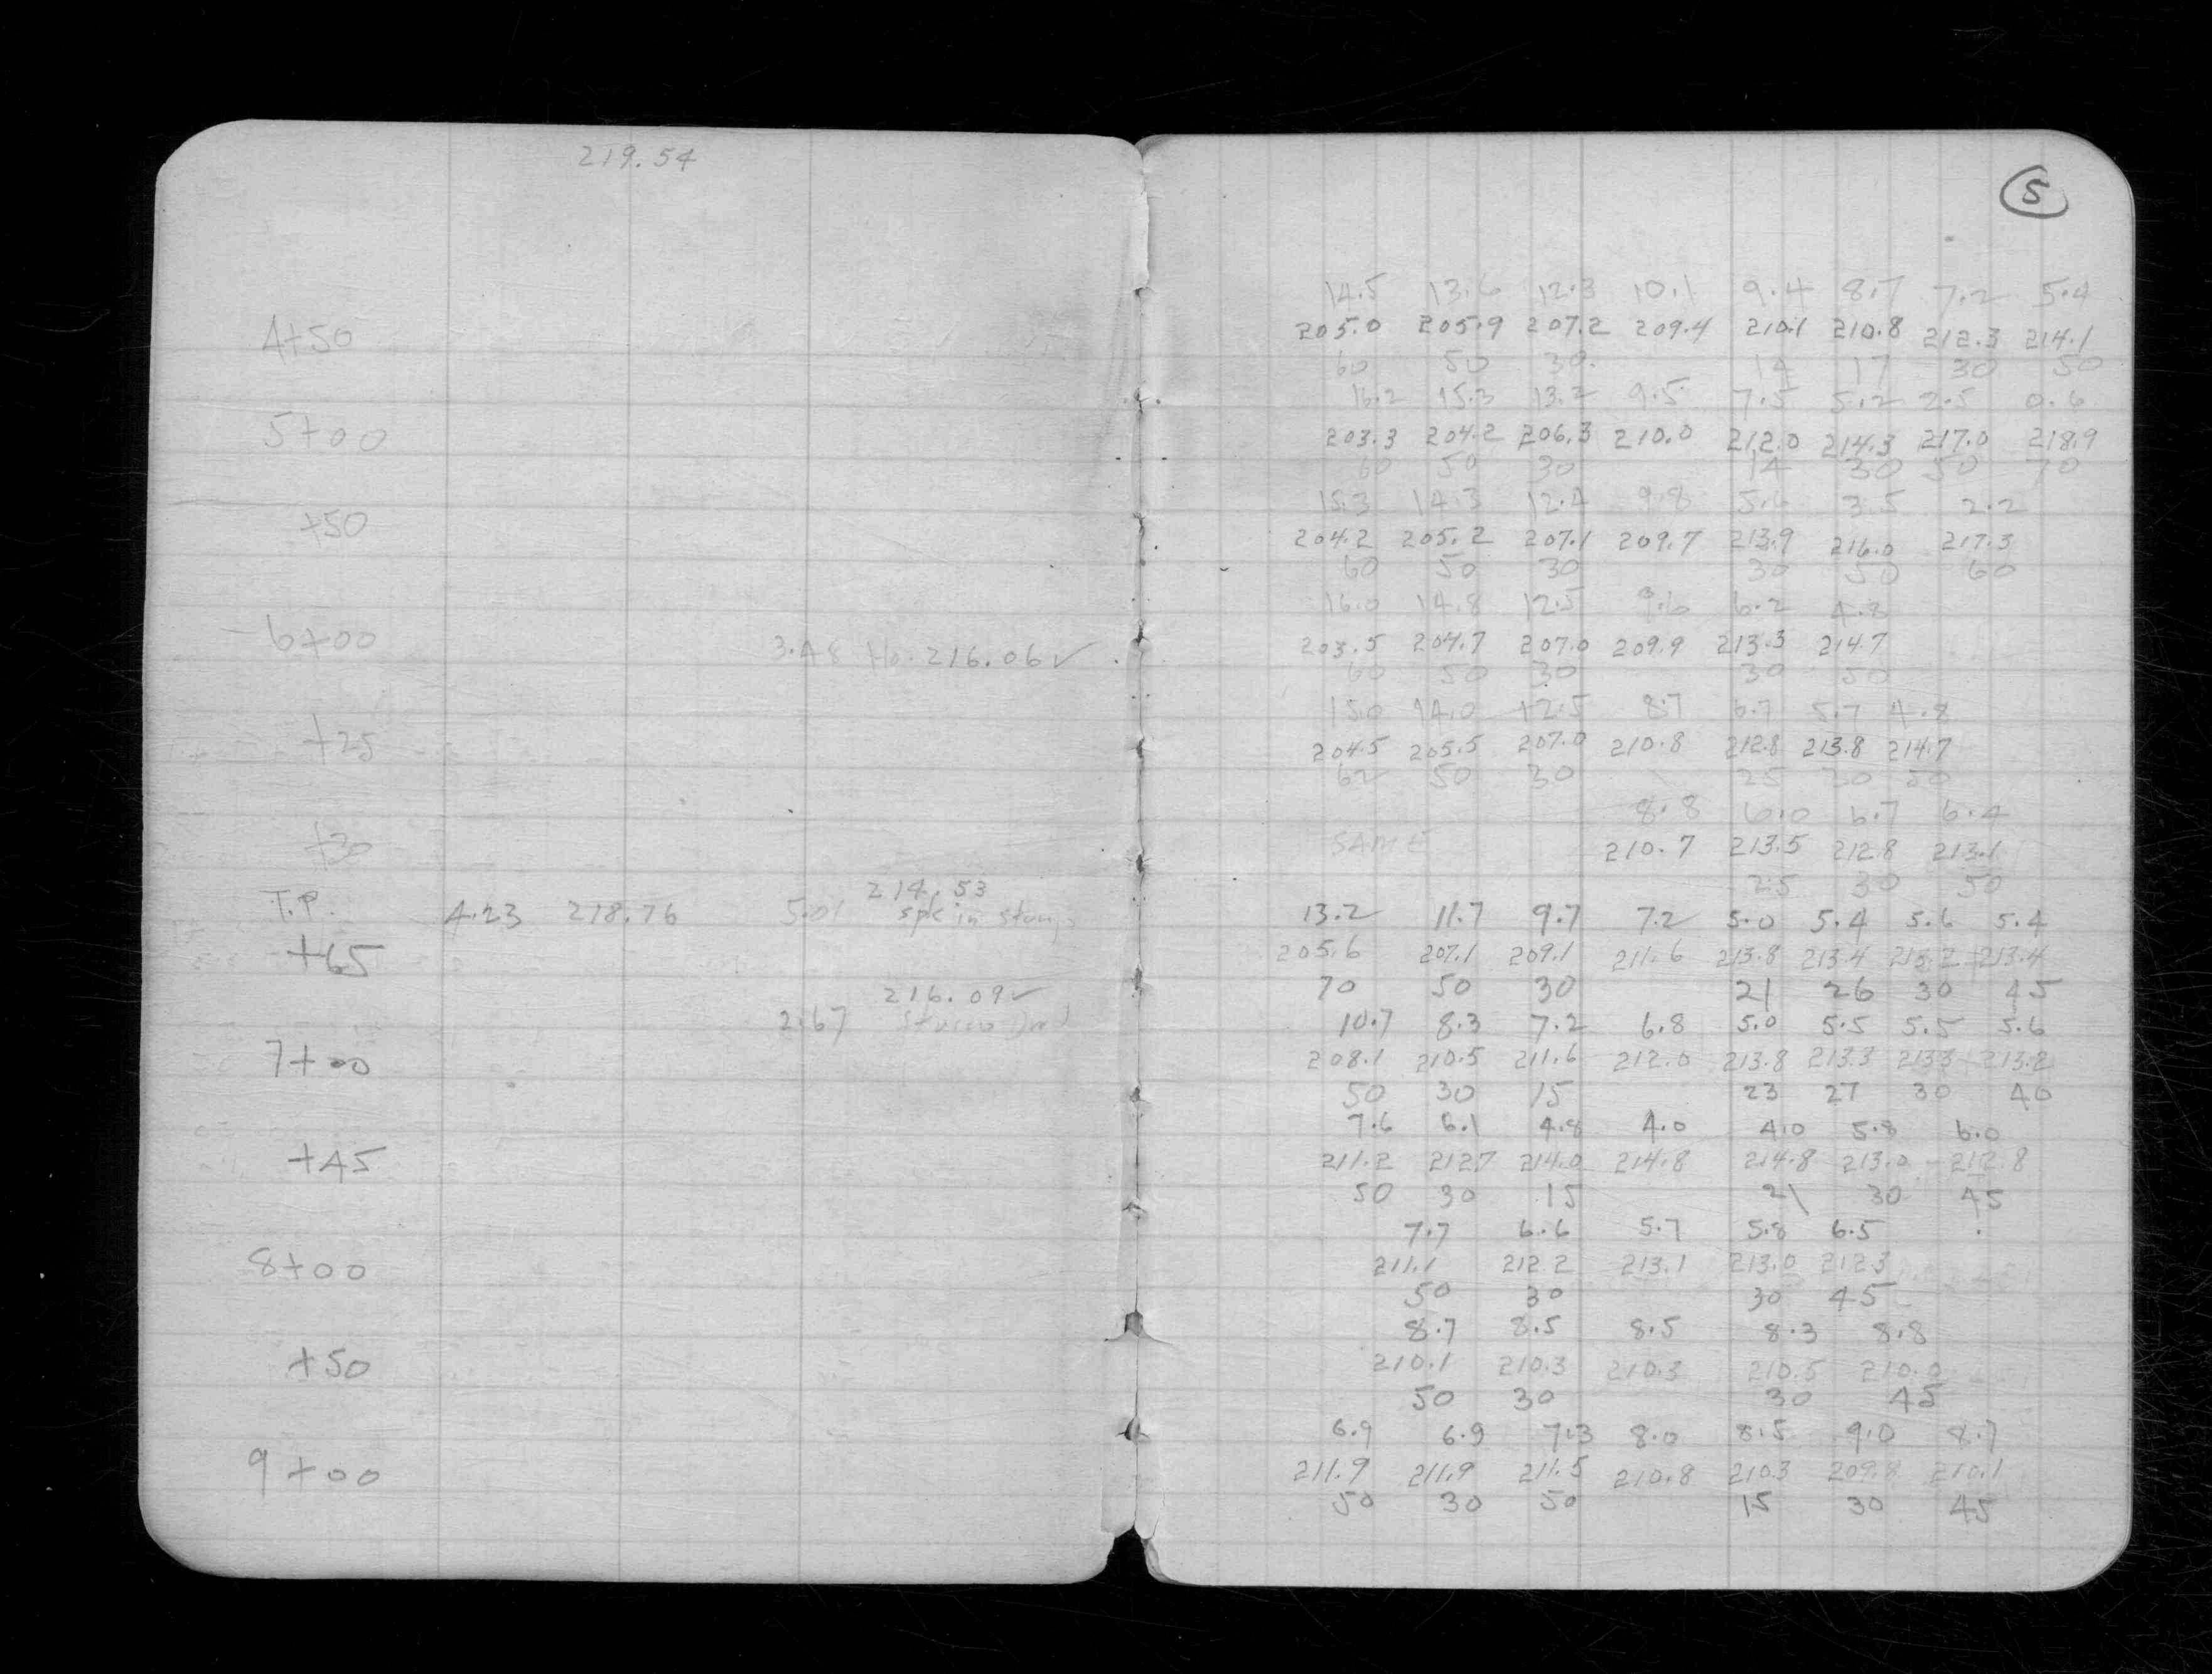 219.54
4+50
5+00
+50
6+00 3.48 216.06 ✓
+25
+30
214.53
T.P. 4.23 218.76 5.01 spk in stump
+65
216.09 ✓
2.67
7+00
+45
8+00
+50
9+00
5
14.5 13.6 12.3 10.1 9.4 8.7 7.2 5.4
205.0 205.9 207.2 209.4 210.1 210.8 212.3 214.1
60 50 30 14 17 30 50
16.2 15.3 13.2 9.5 7.5 5.2 2.5 0.6
203.3 204.2 206.3 210.0 212.0 214.3 217.0 218.9
60 50 30 14 30 50 70
15.3 14.3 12.4 9.8 5.6 3.5 2.2
204.2 205.2 207.1 209.7 213.9 216.0 217.3
60 50 30 30 50 60
16.0 14.8 12.5 9.6 6.2 4.8
203.5 204.7 207.0 209.9 213.3 214.7
60 50 30 30 50
15.0 14.0 12.5 8.7 6.7 5.7 4.8
204.5 205.5 207.0 210.8 212.8 213.8 214.7
62 50 30 25 30 50
8.8 6.0 6.7 6.4
SAME 210.7 213.5 212.8 213.1
25 30 50
13.2 11.7 9.7 7.2 5.0 5.4 5.6 5.4
205.6 207.1 209.1 211.6 213.8 213.4 213.2 213.4
70 50 30 21 26 30 45
10.7 8.3 7.2 6.8 5.0 5.5 5.5 5.6
208.1 210.5 211.6 212.0 213.8 213.3 213.3 213.2
50 30 15 23 27 30 40
7.6 6.1 4.8 4.0 4.0 5.8 6.0
211.2 212.7 214.0 214.8 214.8 213.0 212.8
50 30 15 21 30 45
7.7 6.6 5.7 5.8 6.5
211.1 212.2 213.1 213.0 212.3
50 30 30 45
8.7 8.5 8.5 8.3 8.8
210.1 210.3 210.3 210.5 210.0
50 30 30 45
6.9 6.9 7.3 8.0 8.5 9.0 8.7
211.9 211.9 211.5 210.8 210.3 209.8 210.1
50 30 50 15 30 45